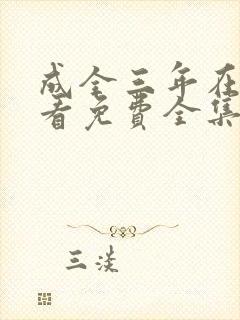 成全三年在
看免费全集
三淡